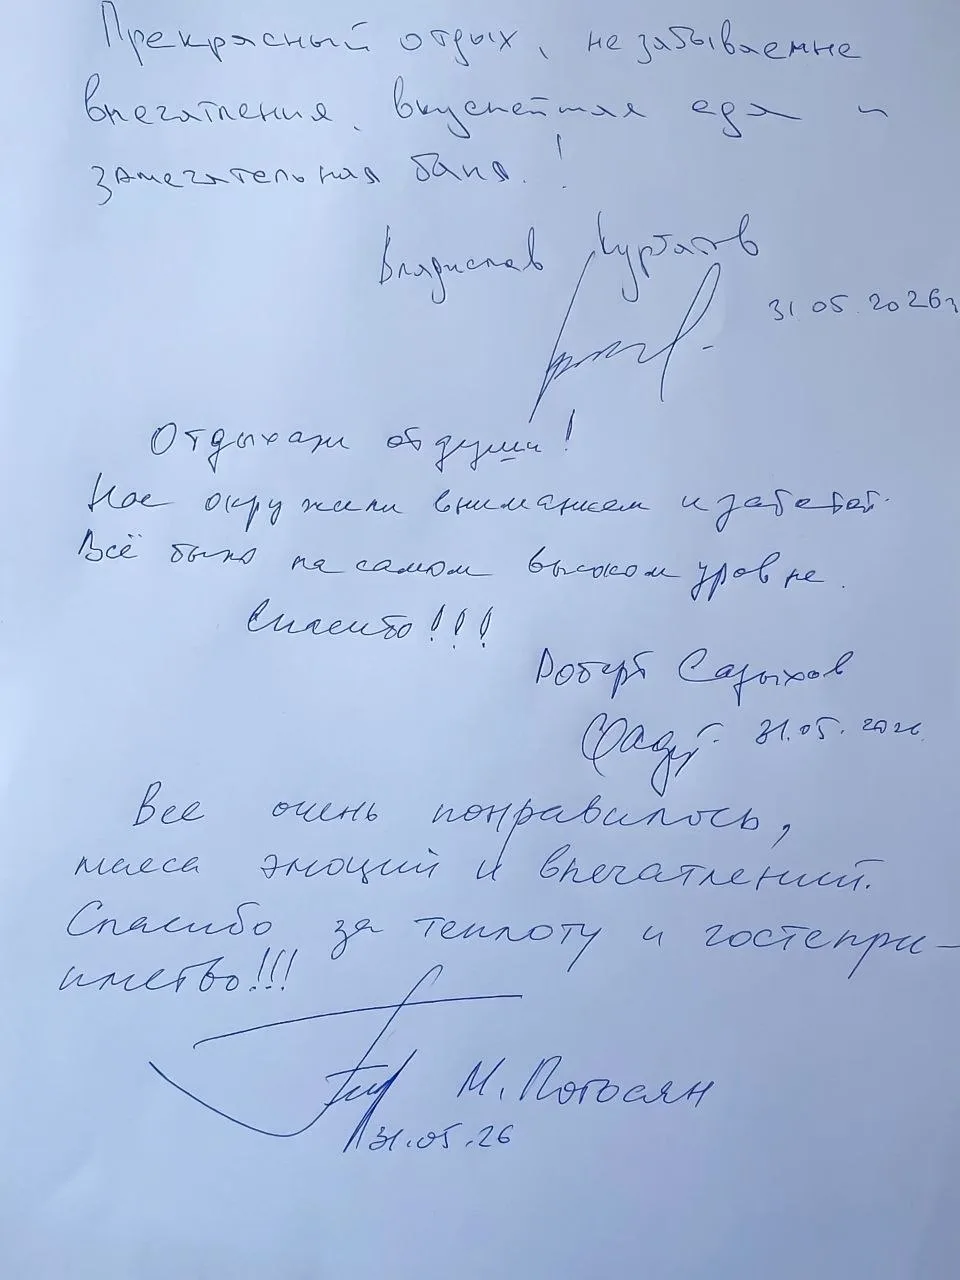 Прекрасный отдых, незабываемые
впечатления, вкуснейшая еда и
замечательная баня!
Владислав Курташов
31.05.2026г
Отдыхали от души!
Нас окружили вниманием и заботой.
Всё было на самом высоком уровне.
Спасибо!!!
Роберт Садыхов
31.05.2026
Все очень понравилось,
масса эмоций и впечатлений.
Спасибо за теплоту и гостепри-
имство!!!
М. Погосян
31.05.26